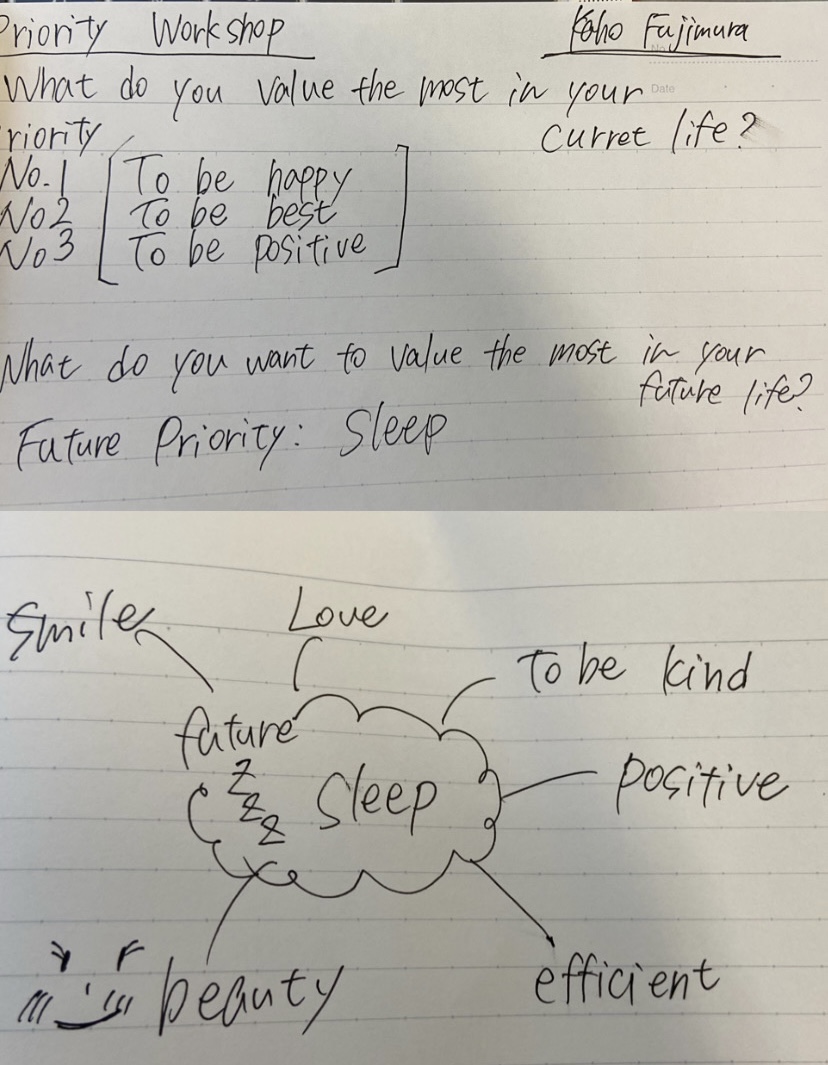 Priority Workshop
Kaho Fujimura
What do you value the most in your
Curret life?
riority
No.1 [To be happy
No2 To be best
No3 To be positive]
No.
Date
What do you want to value the most in your
future life?
Future Priority: Sleep
Smile
Love
To be kind
future
z
z
z
Sleep
positive
beauty
efficient